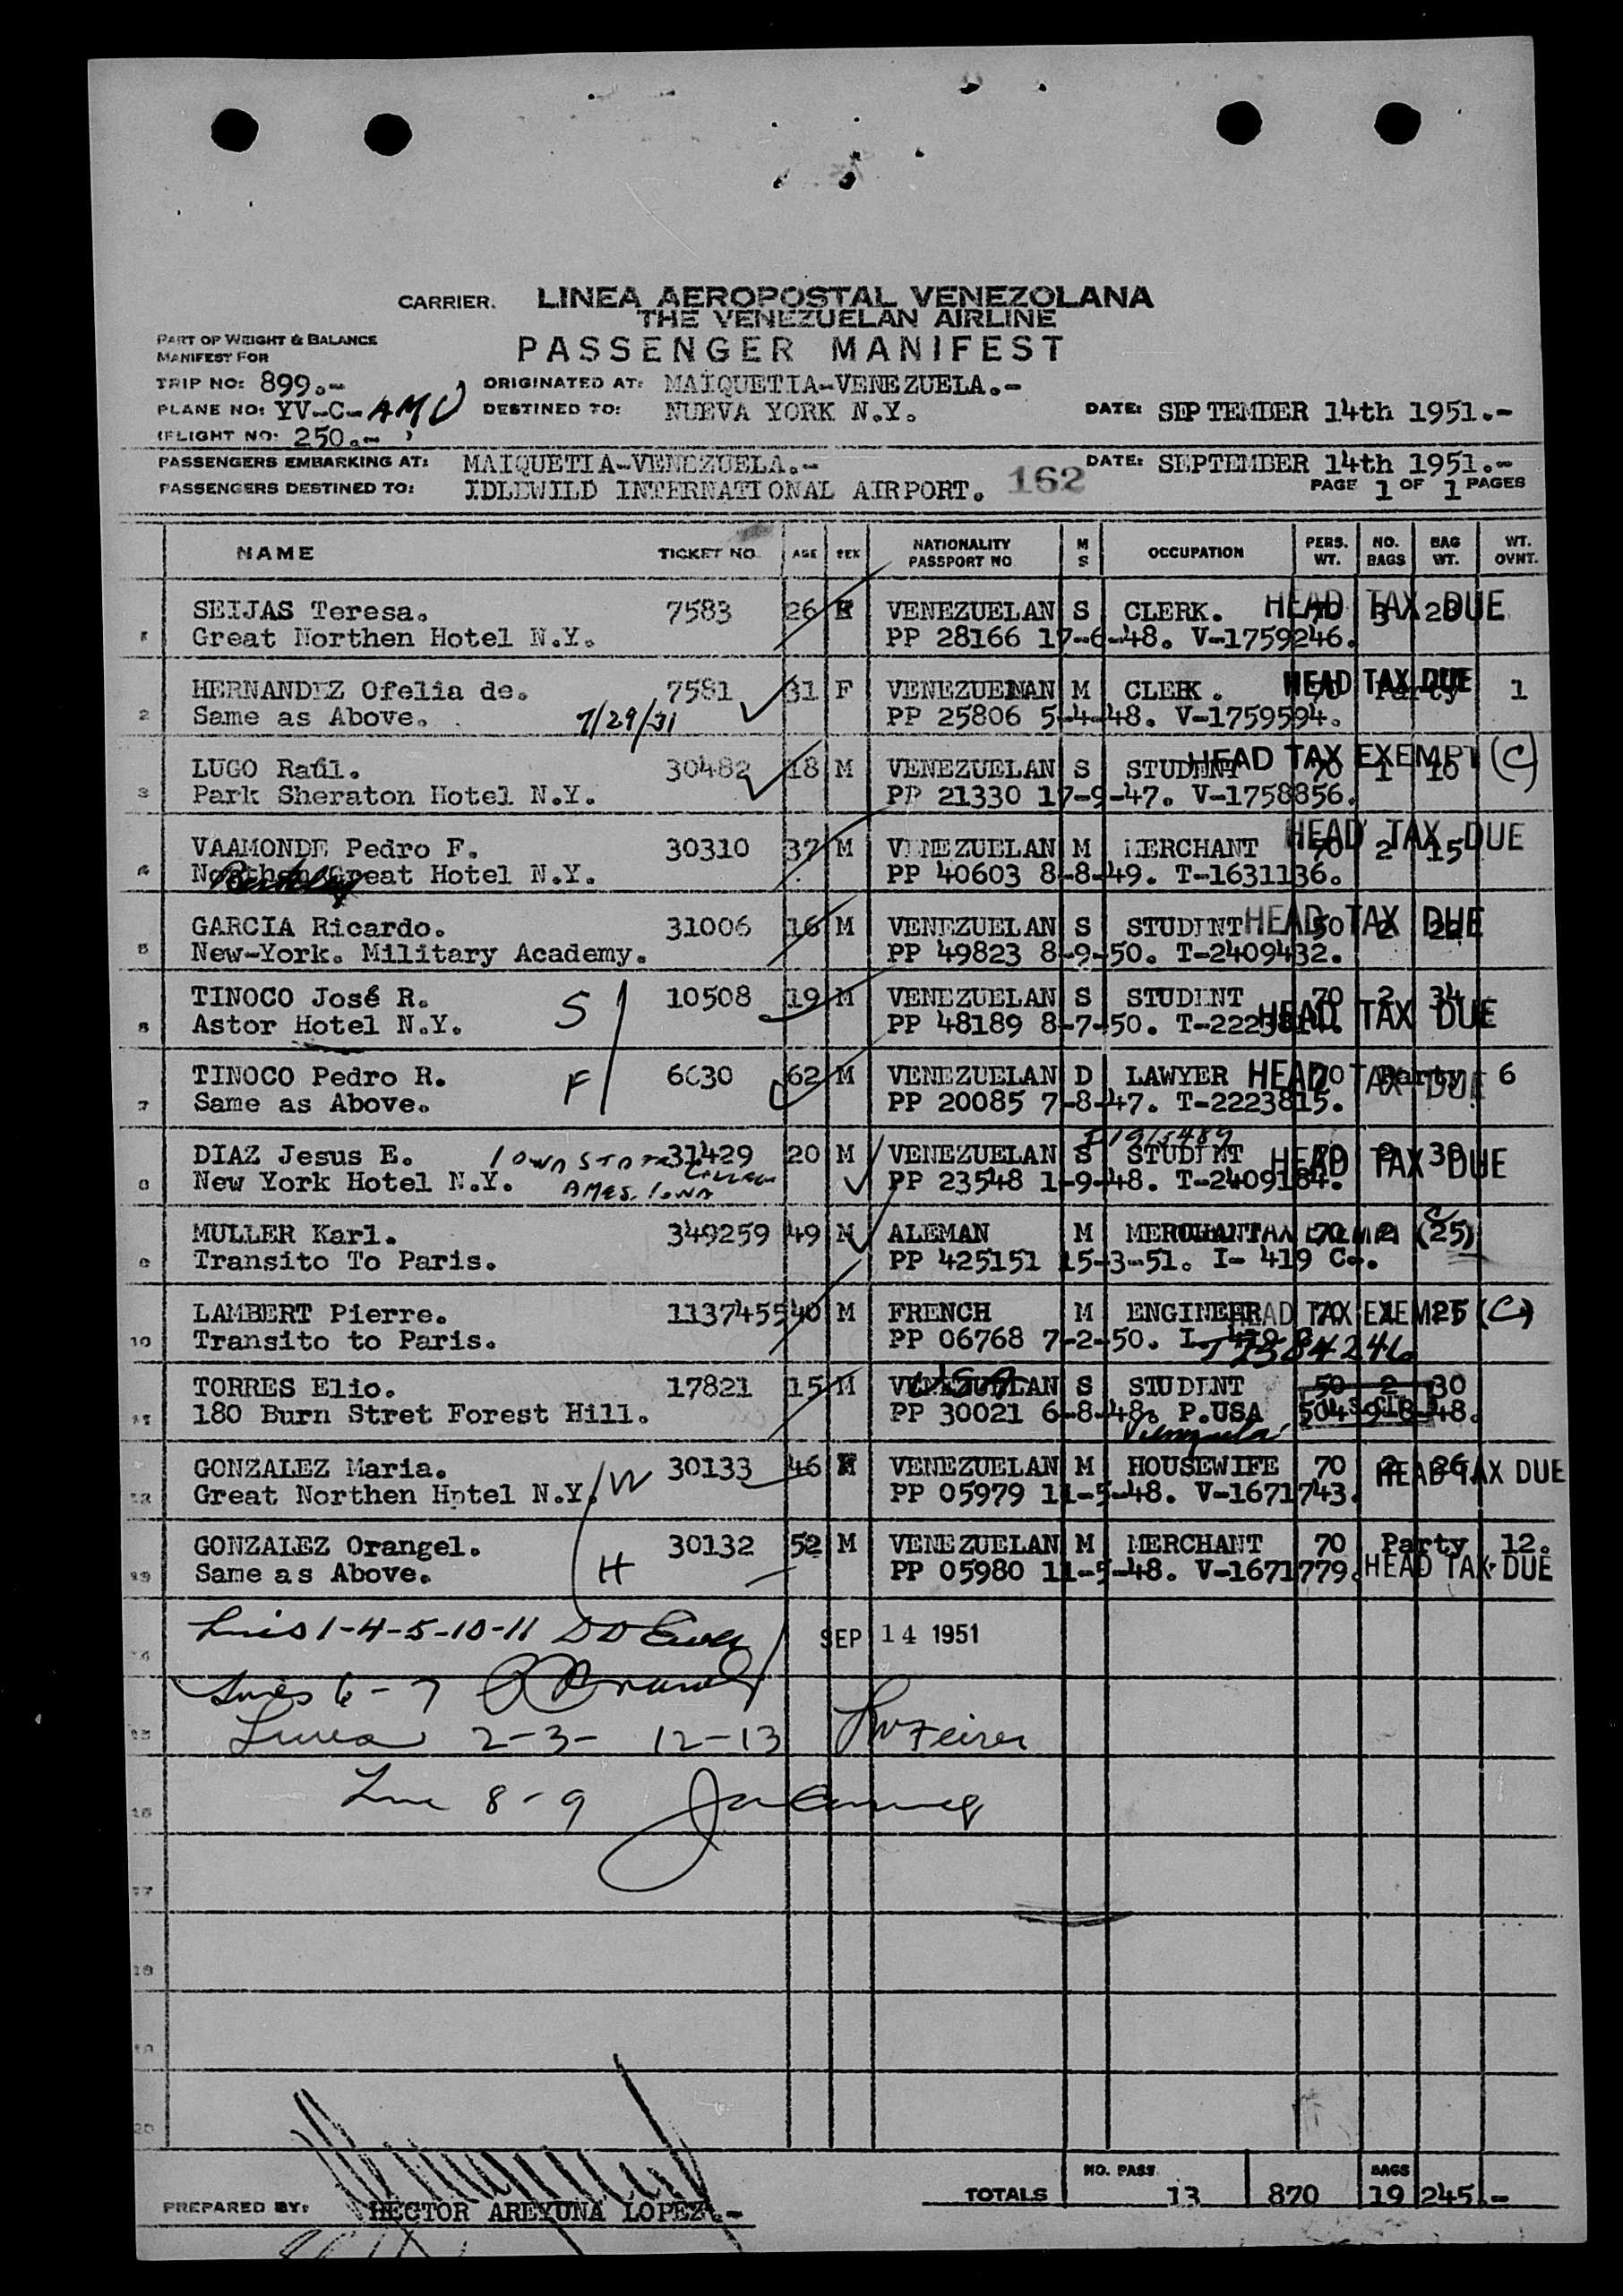 CARRIER. LINEA AEROPOSTAL VENEZOLANA
THE VENEZUELAN AIRLINE
PART OF WEIGHT & BALANCE
MANIFEST FOR
PASSENGER MANIFEST
TRIP NO: 899.- ORIGINATED AT: MAIQUETIA-VENEZUELA.-
PLANE NO: YV-C-AMU DESTINED TO: NUEVA YORK N.Y. DATE: SEPTEMBER 14th 1951.-
FLIGHT NO: 250.-
PASSENGERS EMBARKING AT: MAIQUETIA-VENEZUELA.- DATE: SEPTEMBER 14th 1951.-
PASSENGERS DESTINED TO: IDLEWILD INTERNATIONAL AIRPORT. 162 PAGE 1 OF 1 PAGES
NAME TICKET NO. AGE SEX NATIONALITY PASSPORT NO M S OCCUPATION PERS. WT. NO. BAGS BAG WT. WT. OVNT.
SEIJAS Teresa. 7583 26 F VENEZUELAN S CLERK. HEAD TAX DUE
1 Great Northen Hotel N.Y. PP 28166 17-6-48. V-1759246.
HERNANDEZ Ofelia de. 7581 31 F VENEZUELAN M CLERK. 70 Party 1 HEAD TAX DUE
2 Same as Above. 7/29/31 PP 25806 5-4-48. V-1759594.
LUGO Raúl. 30482 18 M VENEZUELAN S STUDENT 70 1 HEAD TAX EXEMPT (C)
3 Park Sheraton Hotel N.Y. PP 21330 17-9-47. V-1758856.
VAAMONDE Pedro F. 30310 37 M VENEZUELAN M MERCHANT 70 2 15 HEAD TAX DUE
4 Northen Great Hotel N.Y. PP 40603 8-8-49. T-1631136.
GARCIA Ricardo. 31006 16 M VENEZUELAN S STUDENT 50 2 HEAD TAX DUE
5 New-York. Military Academy. PP 49823 8-9-50. T-2409432.
TINOCO José R. S 10508 19 M VENEZUELAN S STUDENT 70 2 34
6 Astor Hotel N.Y. PP 48189 8-7-50. HEAD TAX DUE
TINOCO Pedro R. F 6630 62 M VENEZUELAN D LAWYER 70 Party 6 HEAD TAX DUE
7 Same as Above. PP 20085 7-8-47. T-2223815.
DIAZ Jesus E. IOWA STATE COLLEGE 31429 20 M VENEZUELAN S STUDENT 70 2 30 HEAD TAX DUE
8 New York Hotel N.Y. AMES. IOWA PP 23548 1-9-48. T-2409184.
MULLER Karl. 349259 49 M ALEMAN M MERCHANT 70 2 (25)
9 Transito To Paris. PP 425151 15-3-51. I- 419 C.
LAMBERT Pierre. 1137455 40 M FRENCH M ENGINEER 70 1 25 HEAD TAX EXEMPT (C)
10 Transito to Paris. PP 06768 7-2-50.
TORRES Elio. 17821 15 M VENEZUELAN USA S STUDENT 50 2 30
11 180 Burn Stret Forest Hill. PP 30021 6-8-48. P.USA
Venezuela
GONZALEZ Maria. W 30133 46 F VENEZUELAN M HOUSEWIFE 70 2 26 HEAD TAX DUE
12 Great Northen Hotel N.Y. PP 05979 11-5-48. V-1671743.
GONZALEZ Orangel. 30132 52 M VENEZUELAN M MERCHANT 70 Party 12.
13 Same as Above. H PP 05980 11-5-48. V-1671779. HEAD TAX DUE
1-4-5-10-11 SEP 14 1951
14
Lines 6-7
15 Lines 2-3- 12-13
16 Line 8-9
17
18
19
20
NO. PASS. BAGS
TOTALS 13 870 19 245.-
PREPARED BY: HECTOR AREYUNA LOPEZ.-